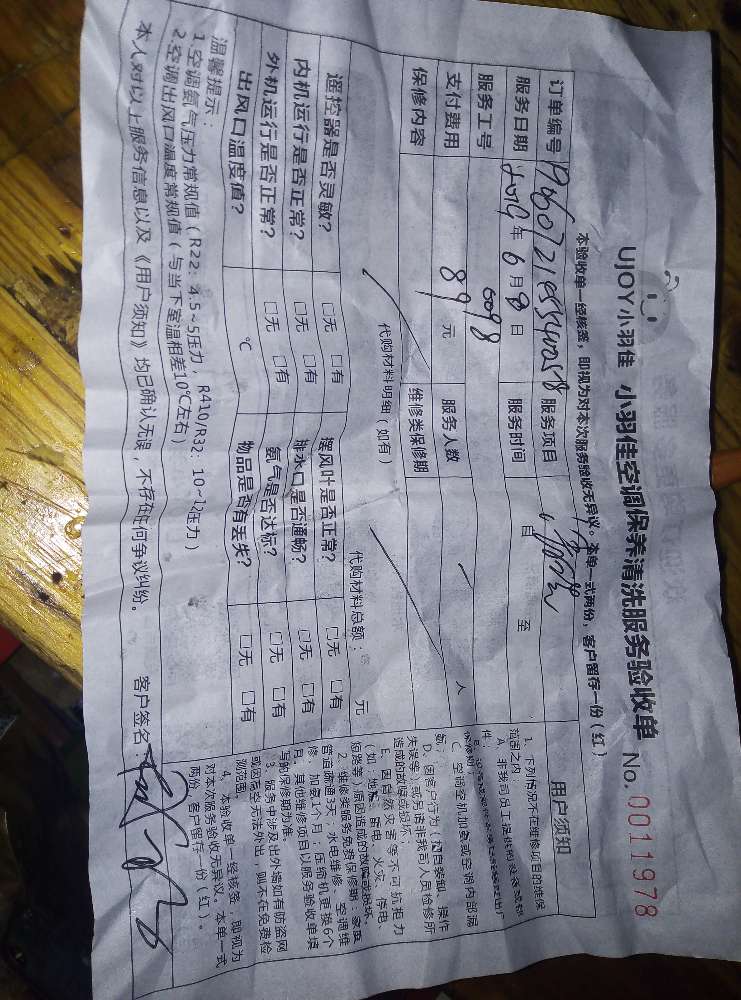 UJOY小羽佳 小羽佳空调保养清洗服务验收单 No. 0011978
本验收单一经核签，即视为对本次服务验收无异议。本单一式两份，客户留存一份（红）
订单编号 服务项目
服务日期 2019 年 6 月 8 日 服务时间 自 至
服务工号 0098
支付费用 89 元 服务人数 人
保修内容 维修类保修期
代购材料明细（如有） 代购材料总额： 元
遥控器是否灵敏？ □无 □有 摆风叶是否正常？ □无 □有
内机运行是否正常？ □无 □有 排水口是否通畅？ □无 □有
外机运行是否正常？ □无 □有 氨气是否达标？ □无 □有
出风口温度值？ ℃ 物品是否有丢失？ □无 □有
温馨提示：
1.空调氨气压力常规值（R22：4.5~5压力，R410/R32：10~12压力）
2.空调出风口温度常规值（与当下室温相差10℃左右）
本人对以上服务信息以及《用户须知》均已确认无误，不存在任何争议纠纷。 客户签名：
用户须知
1、下列情况不在维修项目的维保
范围之内：
A、非我司员工
件；
C、空调空机加氨或空调内部漏
氨；
D、因客户行为（擅自装卸、操作
失误等）或另请非我司人员检修所
造成的故障或损坏；
E、因自然灾害等不可抗拒力
（如：地震、雷电、火灾、停电、
短路等）原因造成的故障或损坏。
2、维修类服务免费保修期：家庭
管道疏通3天；水电维修、空调维
修、加氨1个月；压缩机更换6个
月。其他维修项目以服务验收单填
写的保修期为准。
3、服务中涉及出外墙如有防盗网
或因高空无法外出，则不在免费检
测范围。
4、本验收单一经核签，即视为
对本次服务验收无异议。本单一式
两份，客户留存一份（红）。